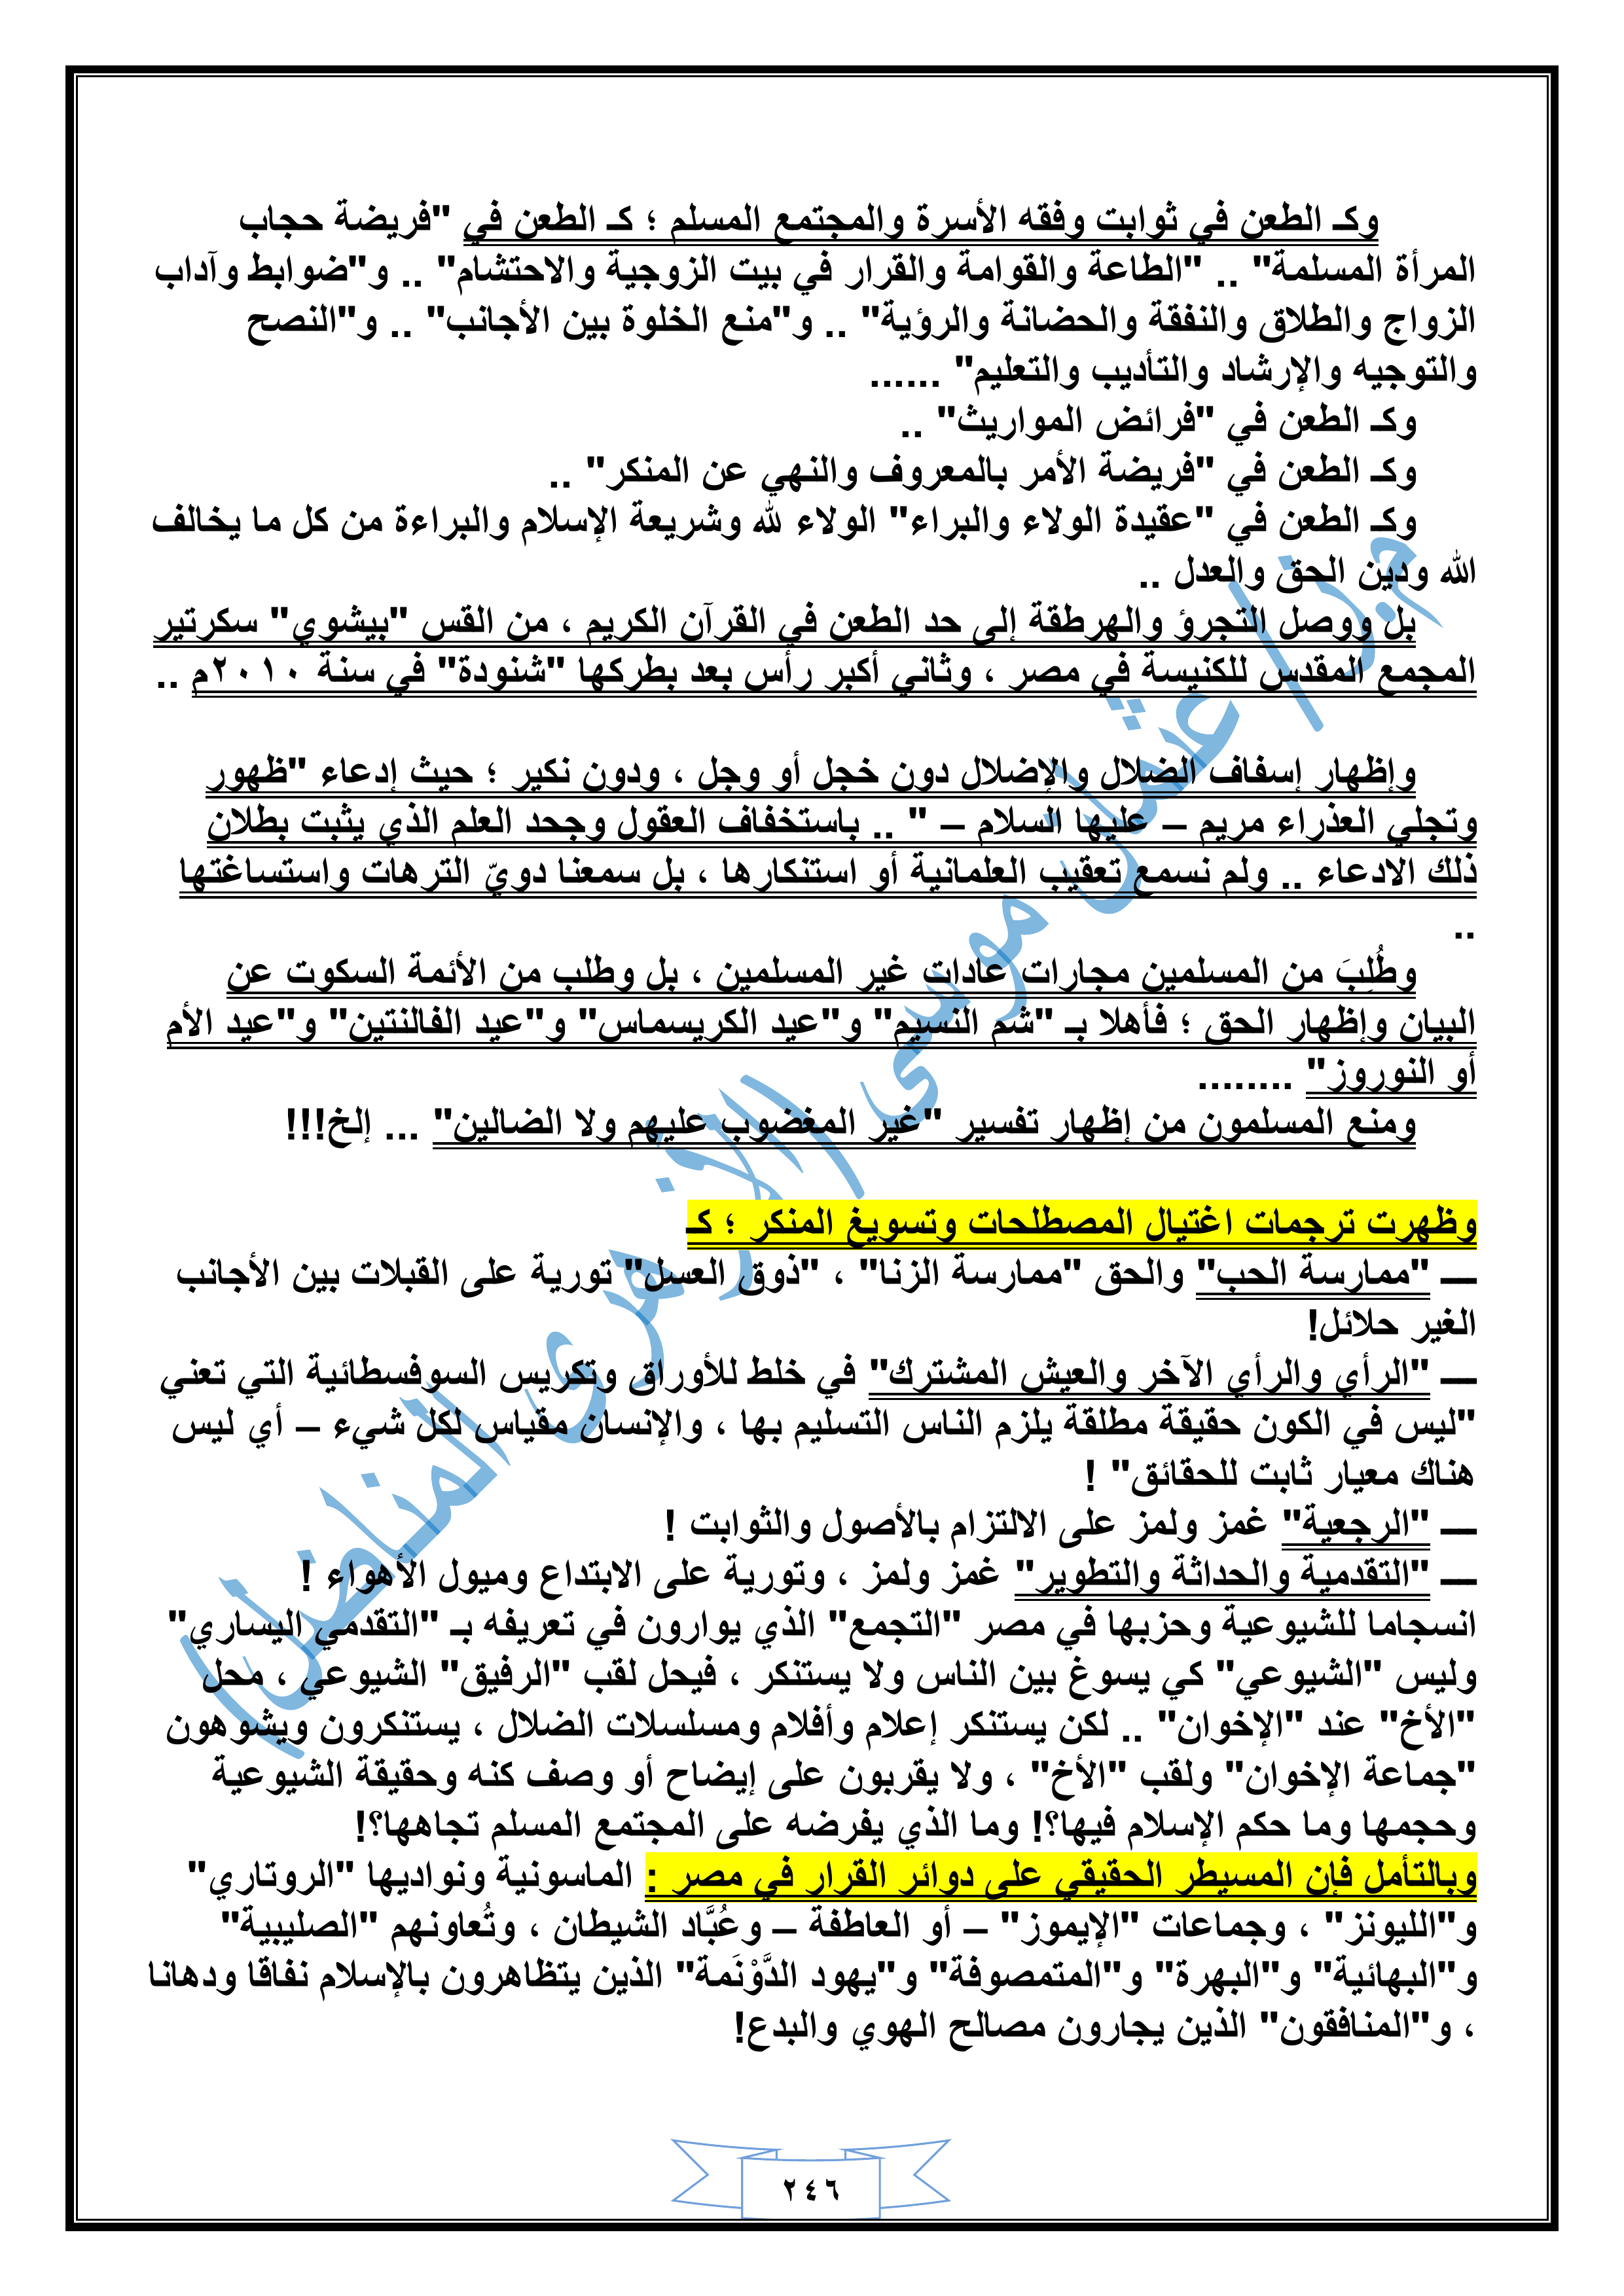 وكـ الطعن في ثوابت وفقه الأسرة والمجتمع المسلم ؛ كـ الطعن في "فريضة حجاب
المرأة المسلمة" .. "الطاعة والقوامة والقرار في بيت الزوجية والاحتشام" .. و"ضوابط وآداب
الزواج والطلاق والنفقة والحضانة والرؤية" .. و"منع الخلوة بين الأجانب" .. و"النصح
والتوجيه والإرشاد والتأديب والتعليم" ......
وكـ الطعن في "فرائض المواريث" ..
وكـ الطعن في "فريضة الأمر بالمعروف والنهي عن المنكر" ..
وكـ الطعن في "عقيدة الولاء والبراء" الولاء لله وشريعة الإسلام والبراءة من كل ما يخالف
الله ودين الحق والعدل ..
بل ووصل التجرؤ والهرطقة إلى حد الطعن في القرآن الكريم ، من القس "بيشوي" سكرتير
المجمع المقدس للكنيسة في مصر ، وثاني أكبر رأس بعد بطركها "شنودة" في سنة ٢٠١٠م ..
وإظهار إسفاف الضلال والإضلال دون خجل أو وجل ، ودون نكير ؛ حيث إدعاء "ظهور
وتجلي العذراء مريم – عليها السلام – " .. باستخفاف العقول وجحد العلم الذي يثبت بطلان
ذلك الادعاء .. ولم نسمع تعقيب العلمانية أو استنكارها ، بل سمعنا دويّ الترهات واستساغتها
..
وطُلِبَ من المسلمين مجارات عادات غير المسلمين ، بل وطلب من الأئمة السكوت عن
البيان وإظهار الحق ؛ فأهلا بـ "شم النسيم" و"عيد الكريسماس" و"عيد الفالنتين" و"عيد الأم
أو النوروز" ........
ومنع المسلمون من إظهار تفسير "غير المغضوب عليهم ولا الضالين" ... إلخ!!!
وظهرت ترجمات اغتيال المصطلحات وتسويغ المنكر ؛ كـ
ـــ "ممارسة الحب" والحق "ممارسة الزنا" ، "ذوق العسل" تورية على القبلات بين الأجانب
الغير حلائل!
ـــ "الرأي والرأي الآخر والعيش المشترك" في خلط للأوراق وتكريس السوفسطائية التي تعني
"ليس في الكون حقيقة مطلقة يلزم الناس التسليم بها ، والإنسان مقياس لكل شيء – أي ليس
هناك معيار ثابت للحقائق" !
ـــ "الرجعية" غمز ولمز على الالتزام بالأصول والثوابت !
ـــ "التقدمية والحداثة والتطوير" غمز ولمز ، وتورية على الابتداع وميول الأهواء !
انسجاما للشيوعية وحزبها في مصر "التجمع" الذي يوارون في تعريفه بـ "التقدمي اليساري"
وليس "الشيوعي" كي يسوغ بين الناس ولا يستنكر ، فيحل لقب "الرفيق" الشيوعي ، محل
"الأخ" عند "الإخوان" .. لكن يستنكر إعلام وأفلام ومسلسلات الضلال ، يستنكرون ويشوهون
"جماعة الإخوان" ولقب "الأخ" ، ولا يقربون على إيضاح أو وصف كنه وحقيقة الشيوعية
وحجمها وما حكم الإسلام فيها؟! وما الذي يفرضه على المجتمع المسلم تجاهها؟!
وبالتأمل فإن المسيطر الحقيقي على دوائر القرار في مصر : الماسونية ونواديها "الروتاري"
و"الليونز" ، وجماعات "الإيموز" – أو العاطفة – وعُبَّاد الشيطان ، وتُعاونهم "الصليبية"
و"البهائية" و"البهرة" و"المتمصوفة" و"يهود الدَّوْنَمة" الذين يتظاهرون بالإسلام نفاقا ودهانا
، و"المنافقون" الذين يجارون مصالح الهوي والبدع!
م.ز/ عثمان موسى (الأزهرى المناضل)
٢٤٦